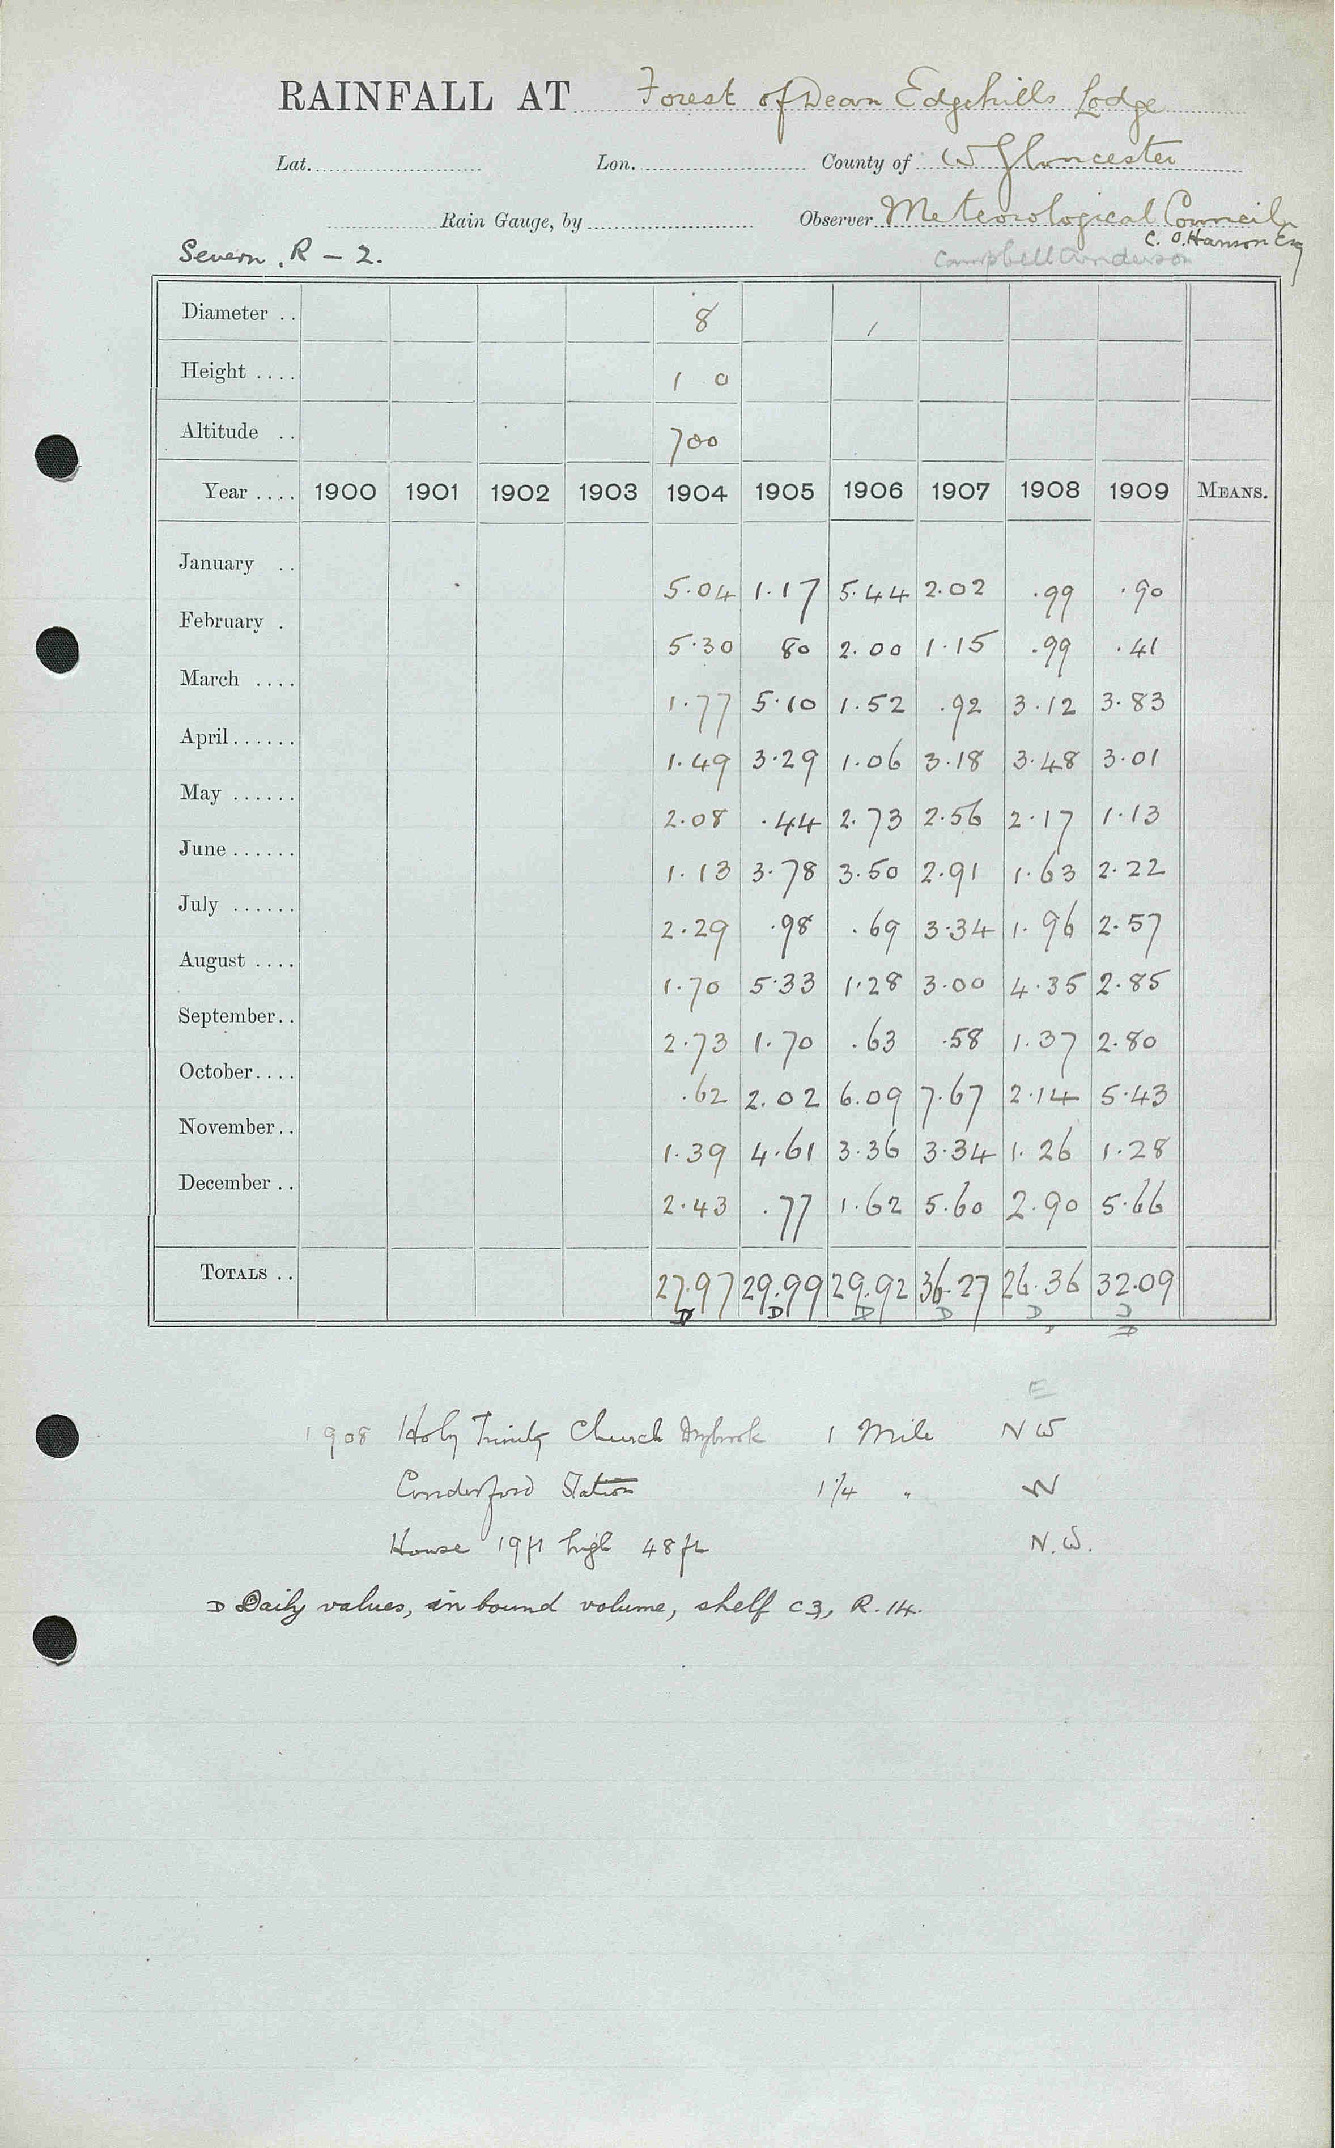 RAINFALL AT Forest of Dean Edgehills Lodge
Lat. Lon. County of W Gloucester
Rain Gauge, by Observer Meteorological Council
C. O. Hanson Esq
Severn. R – 2. Campbell Anderson
Diameter .. 8
Height .... 1 0
Altitude .. 700
Year .... 1900 1901 1902 1903 1904 1905 1906 1907 1908 1909 MEANS.
January .. 5.04 1.17 5.44 2.02 .99 .90
February . 5.30 80 2.00 1.15 .99 .41
March .... 1.77 5.10 1.52 .92 3.12 3.83
April...... 1.49 3.29 1.06 3.18 3.48 3.01
May ...... 2.08 .44 2.73 2.56 2.17 1.13
June...... 1.13 3.78 3.50 2.91 1.63 2.22
July ...... 2.29 .98 .69 3.34 1.96 2.57
August .... 1.70 5.33 1.28 3.00 4.35 2.85
September.. 2.73 1.70 .63 .58 1.37 2.80
October.... .62 2.02 6.09 7.67 2.14 5.43
November.. 1.39 4.61 3.36 3.34 1.26 1.28
December .. 2.43 .77 1.62 5.60 2.90 5.66
TOTALS .. 27.97 29.99 29.92 36.27 26.36 32.09
D D D D D D
E
1908 Holy Trinity Church 1 Mile NW
Cinderford Station 1 1/4 " W
House 19 ft high 48 ft N.W.
D Daily values, in bound volume, shelf C3, R.14.